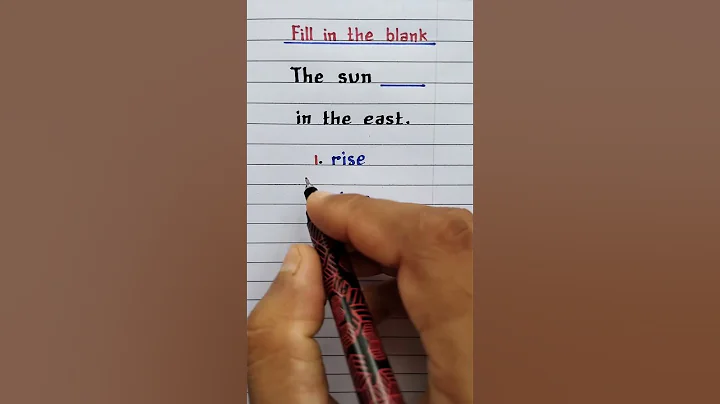 Fill in the blank
The sun ____
in the east.
1. rise